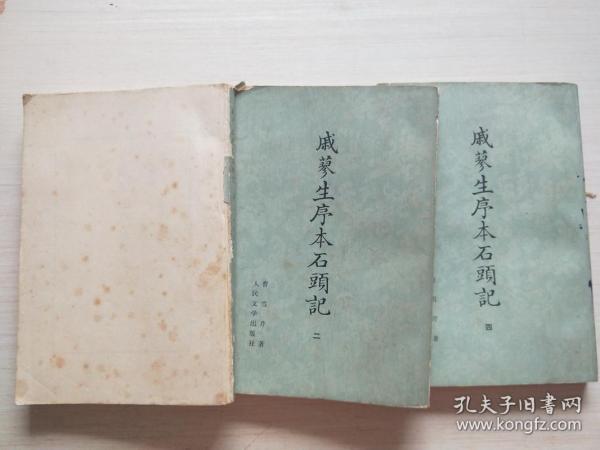 戚蓼生序本石頭記
二
曹雪芹著
人民文学出版社
戚蓼生序本石頭記
四
孔夫子旧書网
www.kongfz.com